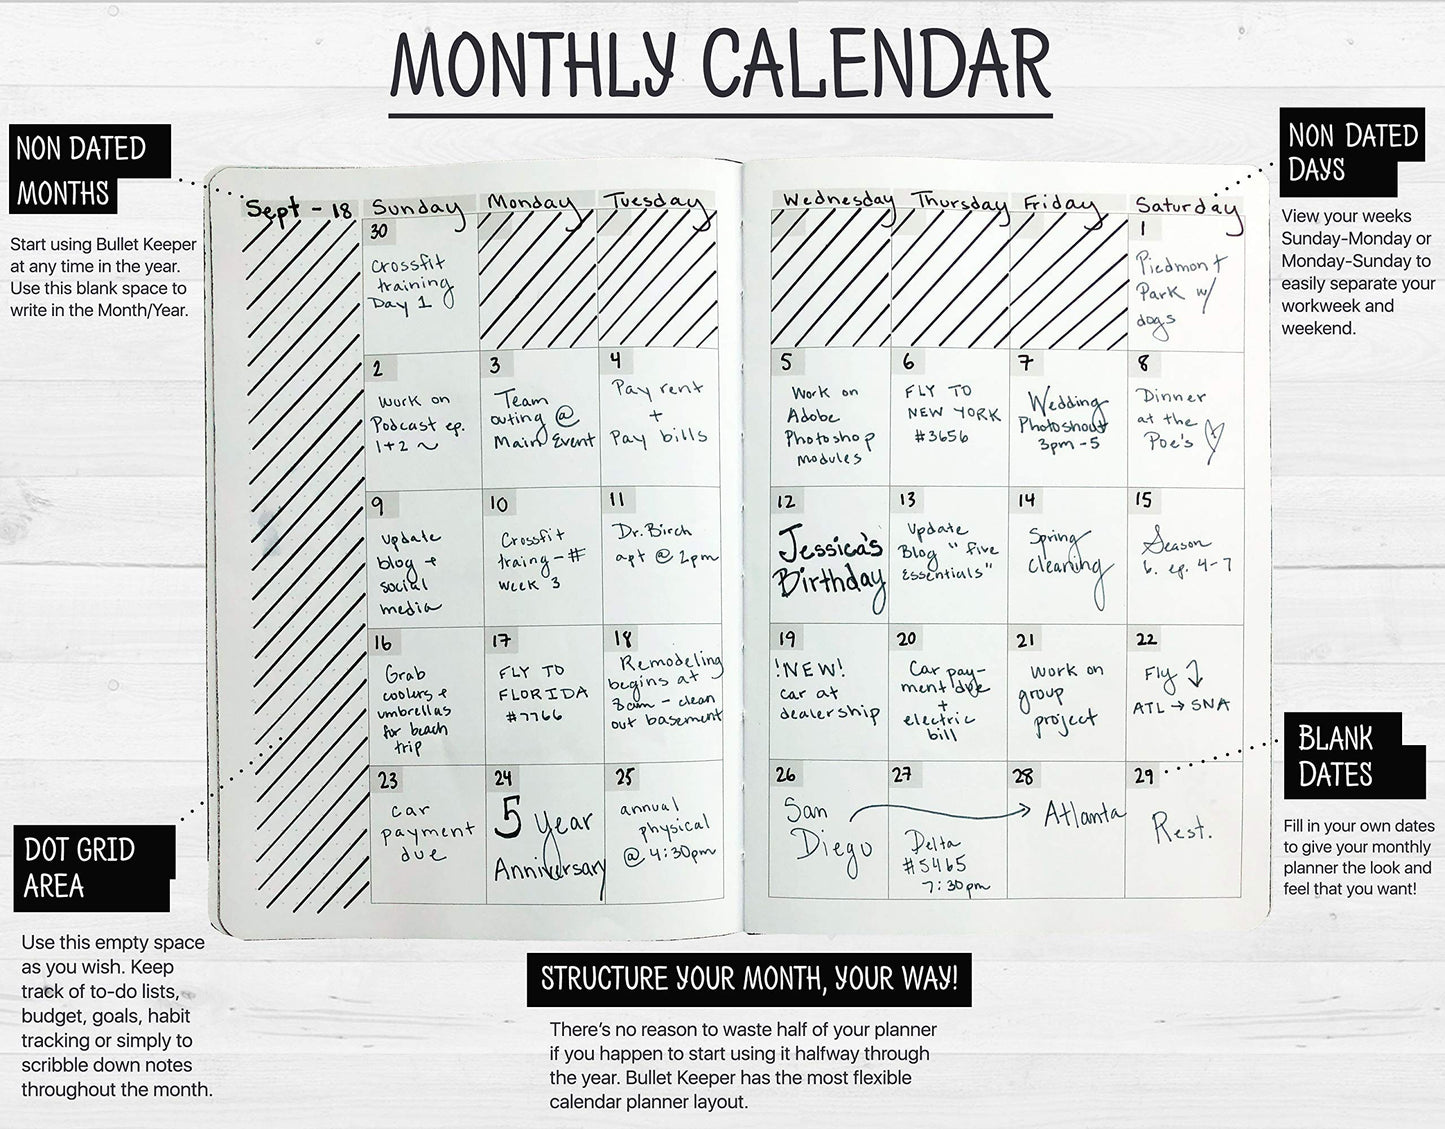 MONTHLY CALENDAR
NON DATED
MONTHS
Start using Bullet Keeper
at any time in the year.
Use this blank space to
write in the Month/Year.
NON DATED
DAYS
View your weeks
Sunday-Monday or
Monday-Sunday to
easily separate your
workweek and
weekend.
Sept - 18
Sunday
Monday
Tuesday
Wednesday
Thursday
Friday
Saturday
30
Crossfit
training
Day 1
1
Piedmont
Park w/
dogs
2
Work on
Podcast ep.
1+2 ~
3
Team
outing @
Main Event
4
Pay rent
+
Pay bills
5
Work on
Adobe
Photoshop
Modules
6
FLY TO
NEW YORK
#3656
7
Wedding
Photoshoot
3pm-5
8
Dinner
at the
Poe's ♡
9
update
blog +
social
media
10
Crossfit
traing-#
Week 3
11
Dr. Birch
apt @ 2pm
12
Jessica's
Birthday
13
Update
Blog "five
Essentials"
14
Spring
cleaning
15
Season
6. ep. 4-7
16
Grab
coolers &
umbrellas
for beach
trip
17
FLY TO
FLORIDA
#7766
18
Remodeling
begins at
8am - clean
out basement
19
!NEW!
car at
dealership
20
Car pay-
ment due
+
electric
bill
21
Work on
group
project
22
Fly ↓
ATL → SNA
23
car
payment
due
24
5 Year
Anniversary
25
annual
physical
@ 4:30pm
26
San
Diego
27
Delta
#5465
7:30pm
28
Atlanta
29
Rest.
DOT GRID
AREA
Use this empty space
as you wish. Keep
track of to-do lists,
budget, goals, habit
tracking or simply to
scribble down notes
throughout the month.
BLANK
DATES
Fill in your own dates
to give your monthly
planner the look and
feel that you want!
STRUCTURE YOUR MONTH, YOUR WAY!
There's no reason to waste half of your planner
if you happen to start using it halfway through
the year. Bullet Keeper has the most flexible
calendar planner layout.